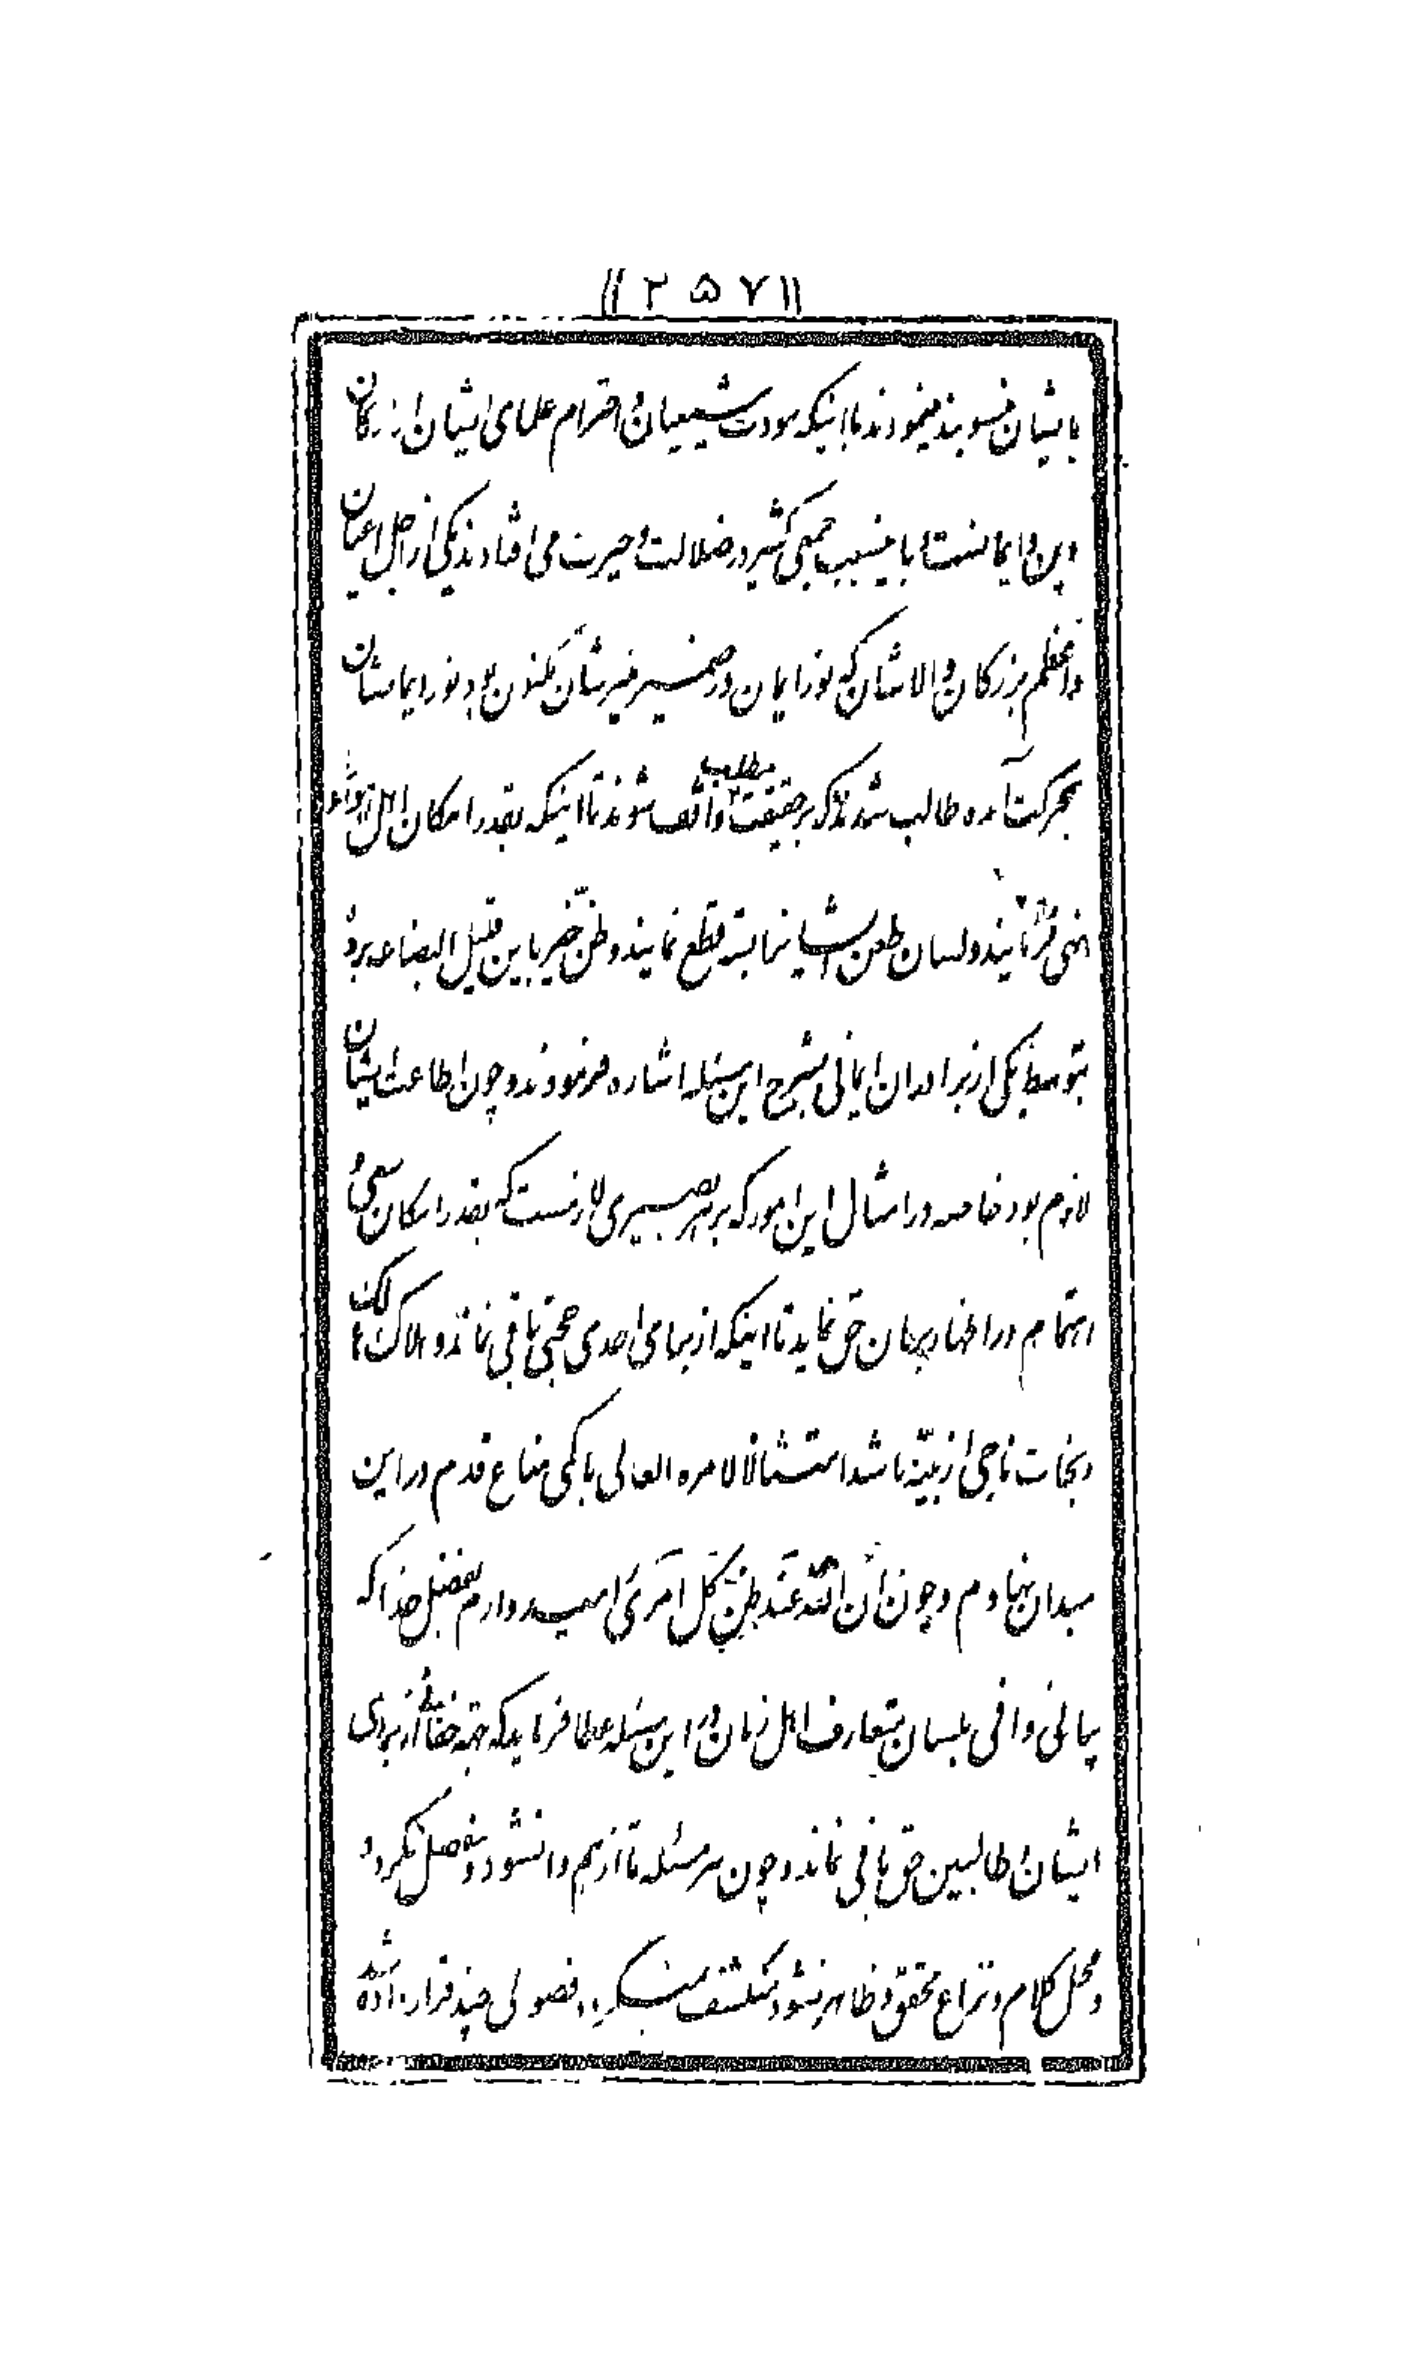 ((۲۵۷))
بایشان منسوب مینمودند با اینکه مودت شیعیان و احترام علمای ایشان از ارکان
دین و ایمانست و باین سبب جمعی کثیر در ضلالت و حیرت می افتادند یکی از اجل اعیان
و اعظم بزرکان والاشان که نور ایمان در ضمیر منیرشان مکنون بود نور ایمانشان
بحرکت آمده طالب شدند که بر حقیقت مطلب واقف شوند تا اینکه بقدر امکان اهل
نهی فرمایند و لسان طعن ایشان را بسته قطع نمایند و ظن خیر باین قلیل البضاعه برده
بتوسط یکی از برادران ایمانی بشرح این مسئله اشاره فرمودند و چون اطاعت ایشان
لازم بود خاصه در امثال این امور که بر هر بصیری لازمست که بقدر امکان سعی و
اهتمام در اظهار برهان حق نماید تا اینکه از برای احدی حجتی باقی نماند و هلاک هالک
و نجات ناجی از بینه باشد امتثالا لامره العالی با کمی متاع قدم در این
میدان نهادم و چون ان الله عند ظن کل امرئ امیدوارم بفضل خدا که
بیانی وافی بلسان متعارف اهل زمان در این مسئله عطا فرماید که هیچ خفائی از برای
ایشان و طالبین حق باقی نماند و چون هر مسئله تا از هم وا نشود و مفصل نکردد
و محل کلام و نزاع محقق و ظاهر نشود منکشف نمیکردد فصولی چند قرار داده شد